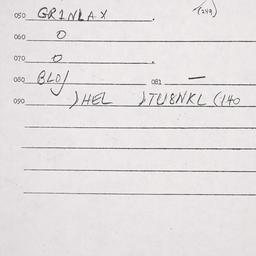 050 GR1NLAX (249)
060 O
070 O
080 BLOJ 081 —
090 )HEL )TU8NKL (140